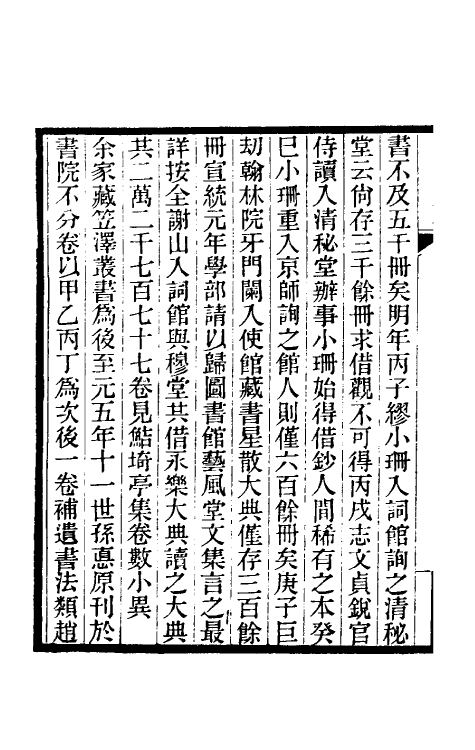 書不及五千冊矣明年丙子繆小珊入詞館詢之清秘
堂云尙存三千餘冊求借觀不可得丙戌志文貞銳官
侍讀入清秘堂辦事小珊始得借鈔人間稀有之本癸
巳小珊重入京師詢之館人則僅六百餘冊矣庚子巨
劫翰林院牙門闌入使館藏書星散大典僅存三百餘
冊宣統元年學部請以歸圖書館藝風堂文集言之最
詳按全謝山入詞館與穆堂共借永樂大典讀之大典
共二萬二千七百七十七卷見鮚埼亭集卷數小異
余家藏笠澤叢書爲後至元五年十一世孫悳原刊於
書院不分卷以甲乙丙丁爲次後一卷補遺書法類趙